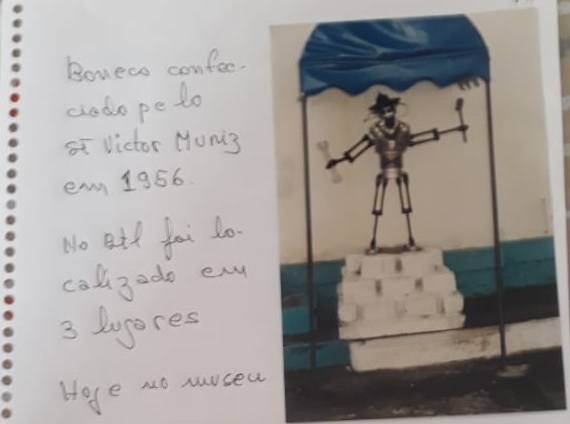 Boneco confec-
ciodo pelo
sr Victor Muniz
em 1956.
No Btl foi lo-
calizado em
3 lugares
Hoje no museu